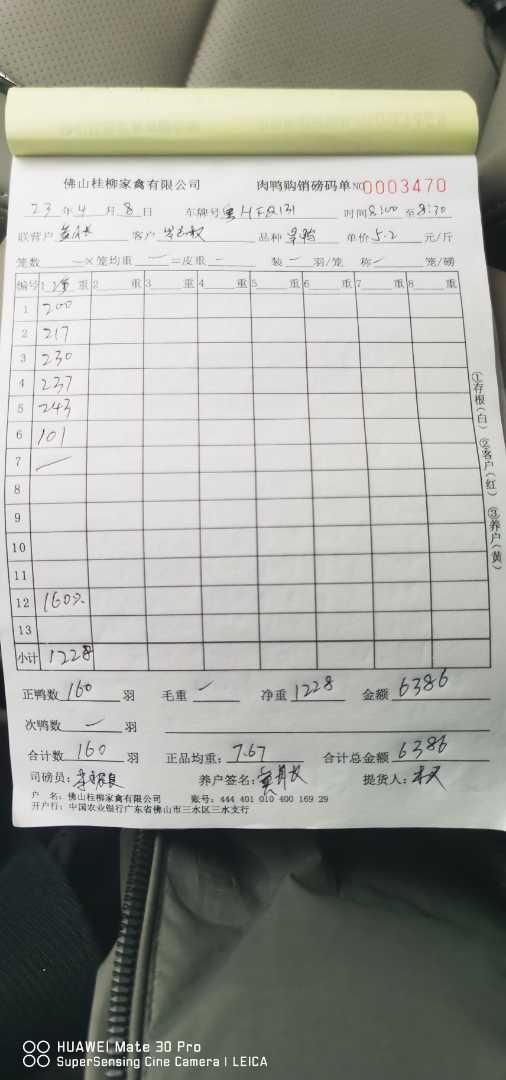 佛山桂柳家禽有限公司 肉鸭购销磅码单 NO 0003470
23年4月8日 车牌号 时间8:00至8:30
联营户 客户 品种 单价5.2元/斤
笼数—×笼均重—=皮重— 装—羽/笼 称—笼/磅
编号 1 重 2 重 3 重 4 重 5 重 6 重 7 重 8 重
1 200
2 217
3 230
4 237
5 243
6 101
7 —
8
9
10
11
12 160
13
小计 1228
①存根(白) ②客户(红) ③养户(黄)
正鸭数160羽 毛重— 净重1228 金额6386
次鸭数—羽
合计数160羽 正品均重:7.67 合计总金额6386
司磅员: 养户签名: 提货人:
户 名:佛山桂柳家禽有限公司 账号:444 401 010 400 169 29
开户行:中国农业银行广东省佛山市三水区三水支行
HUAWEI Mate 30 Pro
SuperSensing Cine Camera | LEICA